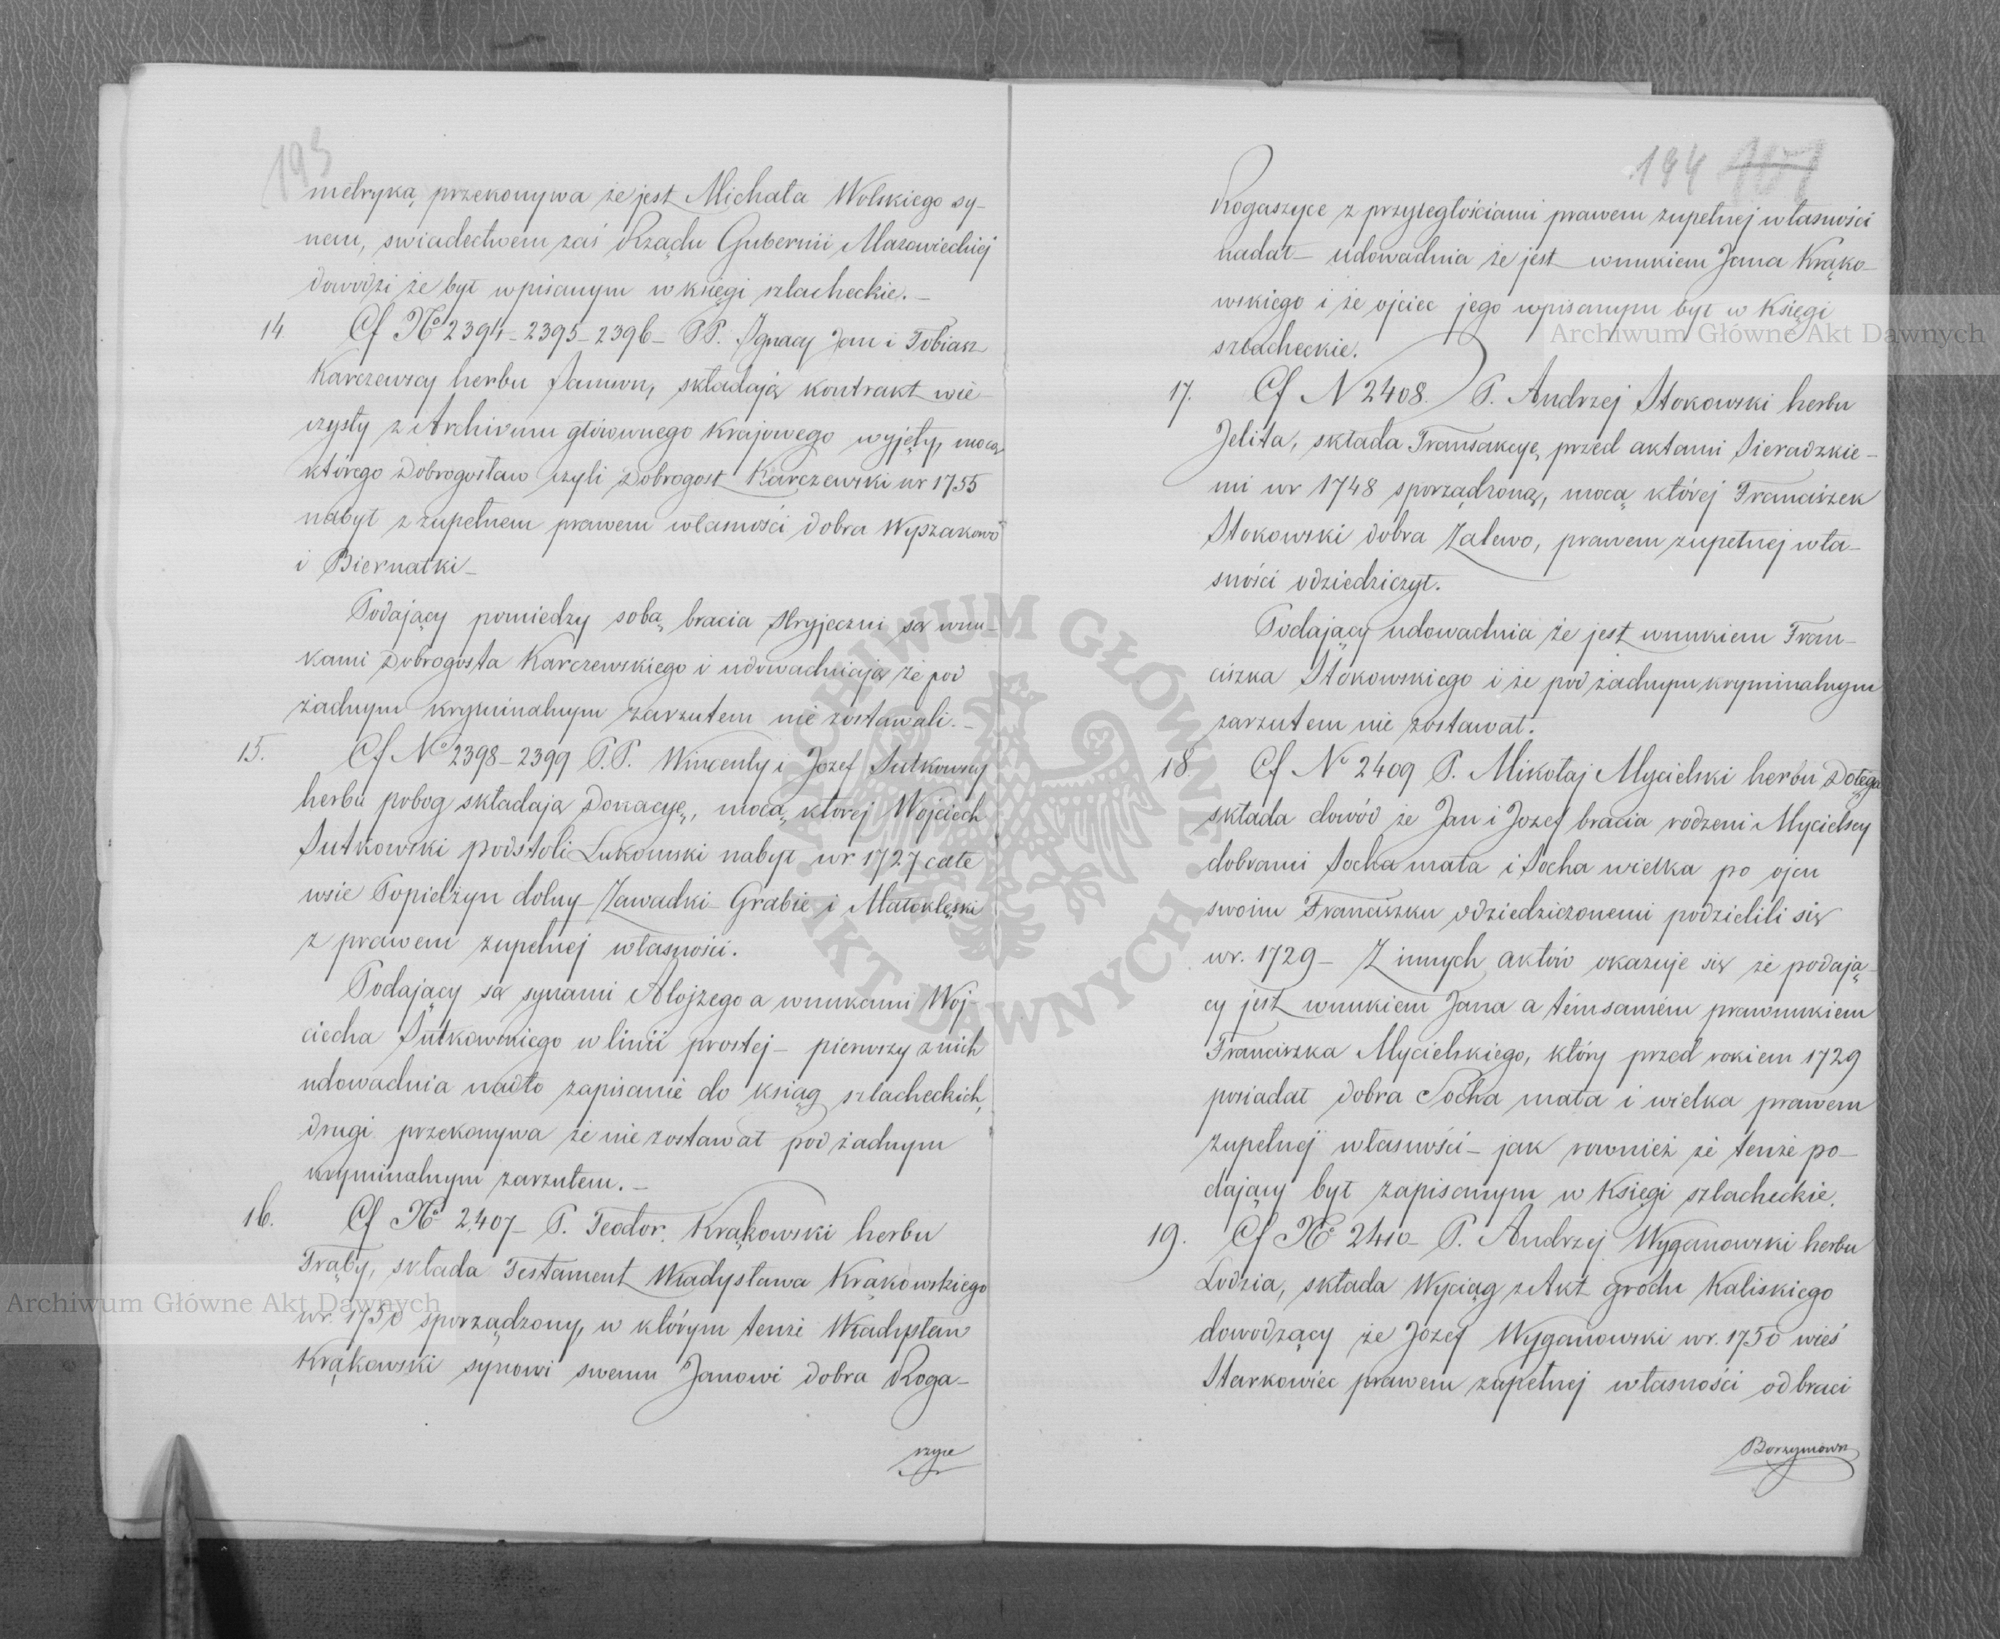 193
metryką przekonywa że jest Michała Wolskiego sy-
nem, swiadectwem zaś Rządu Gubernii Mazowieckiej
dowodzi że był wpisanym w księgi szlacheckie. –
14 Cf Nº 2394 – 2395 – 2396 – PP. Ignacy Jan i Tobiasz
Karczewscy herbu Jasieńczyk, składają kontrakt wie-
czysty z Archivum głównego Krajowego wyjęty, mocą
którego Dobrogosław czyli Dobrogost Karczewski w r 1755
nabył z zupełnem prawem własności dobra Wyszakowo
i Biernatki –
Podający pomiedzy sobą bracia stryjeczni są wnu-
kami Dobrogosta Karczewskiego i udowadniają że pod
żadnym kryminalnym zarzutem nie zostawali. –
15. Cf Nº 2398 – 2399 P.P. Wincenty i Jozef Sutkowscy
herbu pobog składają Donacyę, mocą ktorej Wojciech
Sutkowski podstoli Lukomski nabył w r 1727 całe
wsie Popielżyn dolny – Zawadki – Grabie i Małoklęski
z prawem zupełnej własności.
Podający są synami Alojzego a wnukami Woj-
ciecha Sutkowskiego w linii prostej – pierwszy z nich
udowadnia nadto zapisanie do ksiąg szlacheckich,
drugi przekonywa że nie zostawał pod żadnym
kryminalnym zarzutem. –
16. Cf Nº 2407 – P. Teodor Krąkowski herbu
Trąby, składa Testament Władysława Krąkowskiego
w r. 1750 sporządzony, w którym tenże Władysław
Krąkowski synowi swemu Janowi dobra Roga-
szyce
194 107
Rogaszyce z przyległościami prawem zupełnej własności
nadał – udowadnia że jest wnukiem Jana Krąko-
wskiego i że ojciec jego wpisanym był w Księgi
szlacheckie.
17. Cf N 2408. P. Andrzej Stokowski herbu
Jelita, składa Transakcyę, przed aktami Sieradzkie-
mi w r 1748 sporządzoną, mocą której Franciszek
Stokowski dobra Zalewo, prawem zupełnej wła-
sności odziedziczył.
Podający udowadnia że jest wnukiem Fran-
ciszka Stokowskiego i że pod żadnym kryminalnym
zarzutem nie zostawał.
18 Cf Nº 2409 P. Mikołaj Mycielski herbu Dołęga
składa dowód że Jan i Jozef bracia rodzeni Mycielscy
dobrami Socha mała i Socha wielka po ojcu
swoim Franciszku odziedziczonemi podzielili się
w r. 1729 – Z innych aktów okazuje się że podają-
cy jest wnukiem Jana a témsamém prawnukiem
Franciszka Mycielskiego, który przed rokiem 1729
posiadał dobra Socha mała i wielka prawem
zupełnej własności – jak rownież że tenże po-
dający był zapisanym w Księgi szlacheckie.
19. Cf Nº 2410 – P. Andrzej Wyganowski herbu
Lodzia, składa Wyciąg z Akt grodu Kaliskiego
dowodzący że Józef Wyganowski w r. 1750 wieś
Starkowiec prawem zupełnej własności od braci
Borzymows
Archiwum Główne Akt Dawnych
Archiwum Główne Akt Dawnych
ARCHIWUM GŁÓWNE AKT DAWNYCH